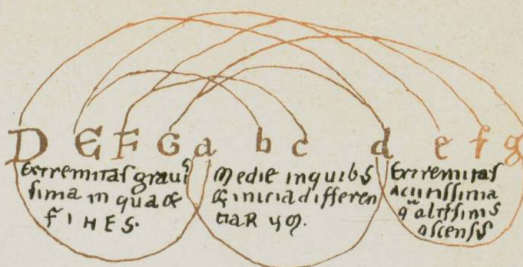 D E F G a b c d e f g
Extremitas graui
sima in qua &
FINES.
Medie in quibus
& inicia differen
tiaR
Extremitas
acutissima
ascensus